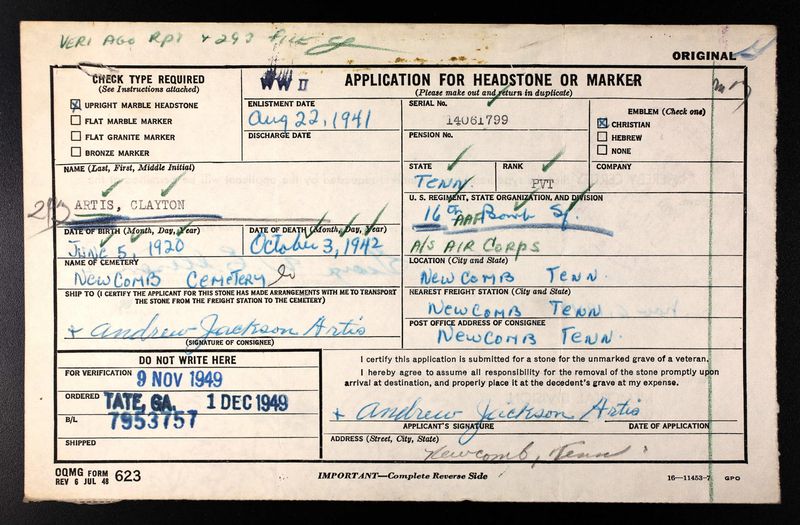 VERI AGO RPT + 293 FILE
ORIGINAL
CHECK TYPE REQUIRED
(See Instructions attached)
UPRIGHT MARBLE HEADSTONE
FLAT MARBLE MARKER
FLAT GRANITE MARKER
BRONZE MARKER
WW II
APPLICATION FOR HEADSTONE OR MARKER
(Please make out and return in duplicate)
ENLISTMENT DATE
Aug 22, 1941
DISCHARGE DATE
SERIAL No.
14061799
PENSION No.
EMBLEM (Check one)
CHRISTIAN
HEBREW
NONE
STATE
TENN.
RANK
PVT
COMPANY
NAME (Last, First, Middle Initial)
293 ARTIS, CLAYTON
U. S. REGIMENT, STATE ORGANIZATION, AND DIVISION
16th AAF Bomb Sq.
A/S AIR CORPS
DATE OF BIRTH (Month, Day, Year)
JUNE 5, 1920
DATE OF DEATH (Month, Day, Year)
October 3, 1942
NAME OF CEMETERY
NEWCOMB CEMETERY
LOCATION (City and State)
NEWCOMB TENN.
SHIP TO (I CERTIFY THE APPLICANT FOR THIS STONE HAS MADE ARRANGEMENTS WITH ME TO TRANSPORT
THE STONE FROM THE FREIGHT STATION TO THE CEMETERY)
+ Andrew Jackson Artis
(SIGNATURE OF CONSIGNEE)
NEAREST FREIGHT STATION (City and State)
NEWCOMB TENN
POST OFFICE ADDRESS OF CONSIGNEE
NEWCOMB TENN.
DO NOT WRITE HERE
FOR VERIFICATION
9 NOV 1949
ORDERED
TATE, GA. 1 DEC 1949
B/L
7953757
SHIPPED
I certify this application is submitted for a stone for the unmarked grave of a veteran.
I hereby agree to assume all responsibility for the removal of the stone promptly upon
arrival at destination, and properly place it at the decedent's grave at my expense.
+ Andrew Jackson Artis
APPLICANT'S SIGNATURE
DATE OF APPLICATION
ADDRESS (Street, City, State)
Newcomb, Tenn.
OQMG FORM 623
REV 6 JUL 48
IMPORTANT—Complete Reverse Side
16—11453-7 GPO